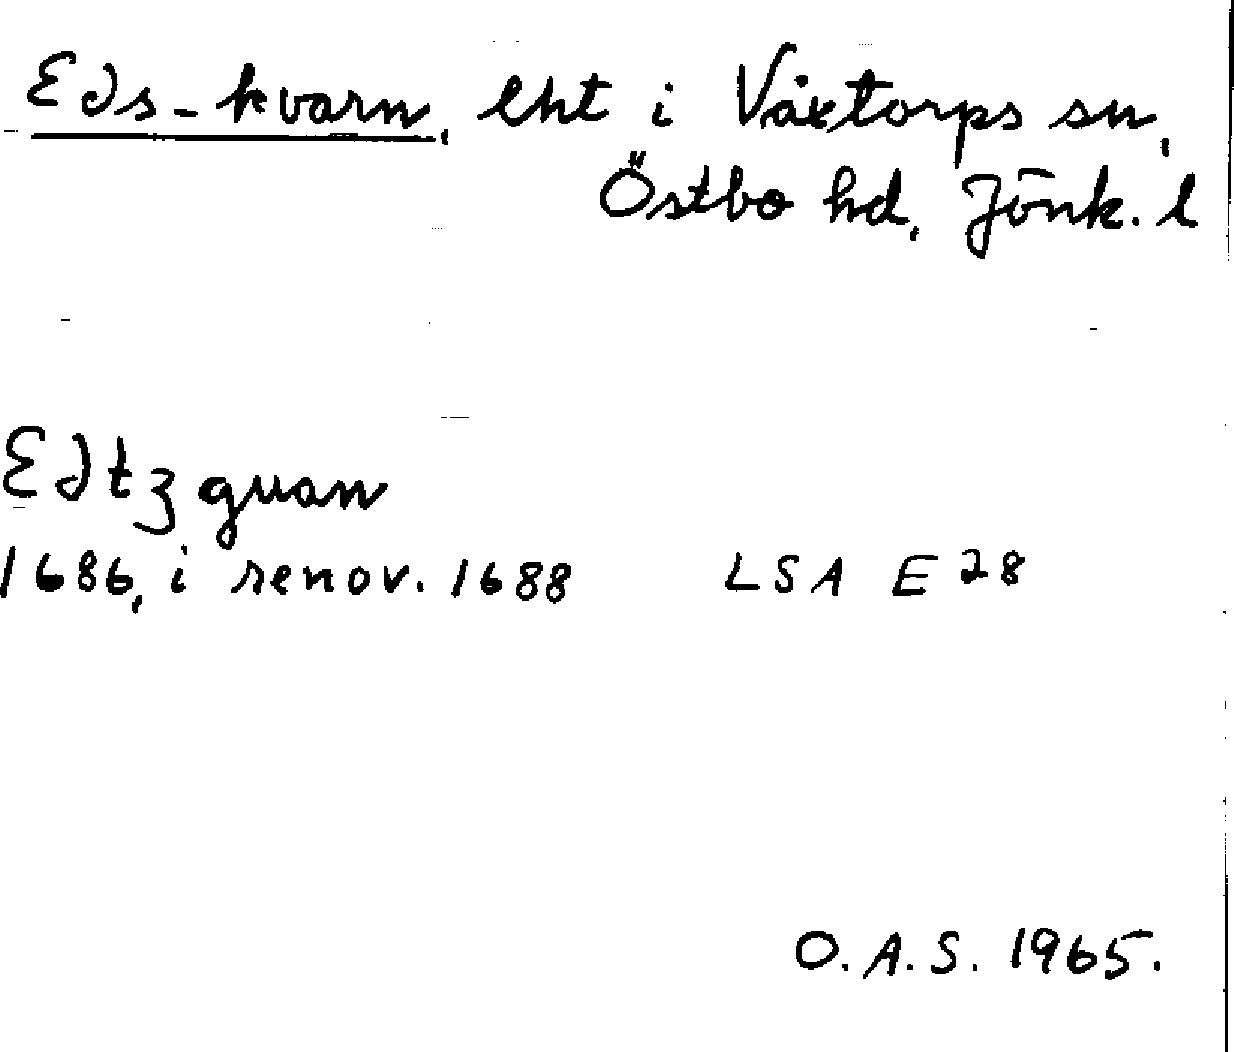 Eds-kvarn, lht i Våxtorps sn,
Östbo hd, Jönk. l
Edtz guan
1686, i renov. 1688 LSA E 28
O.A.S. 1965.